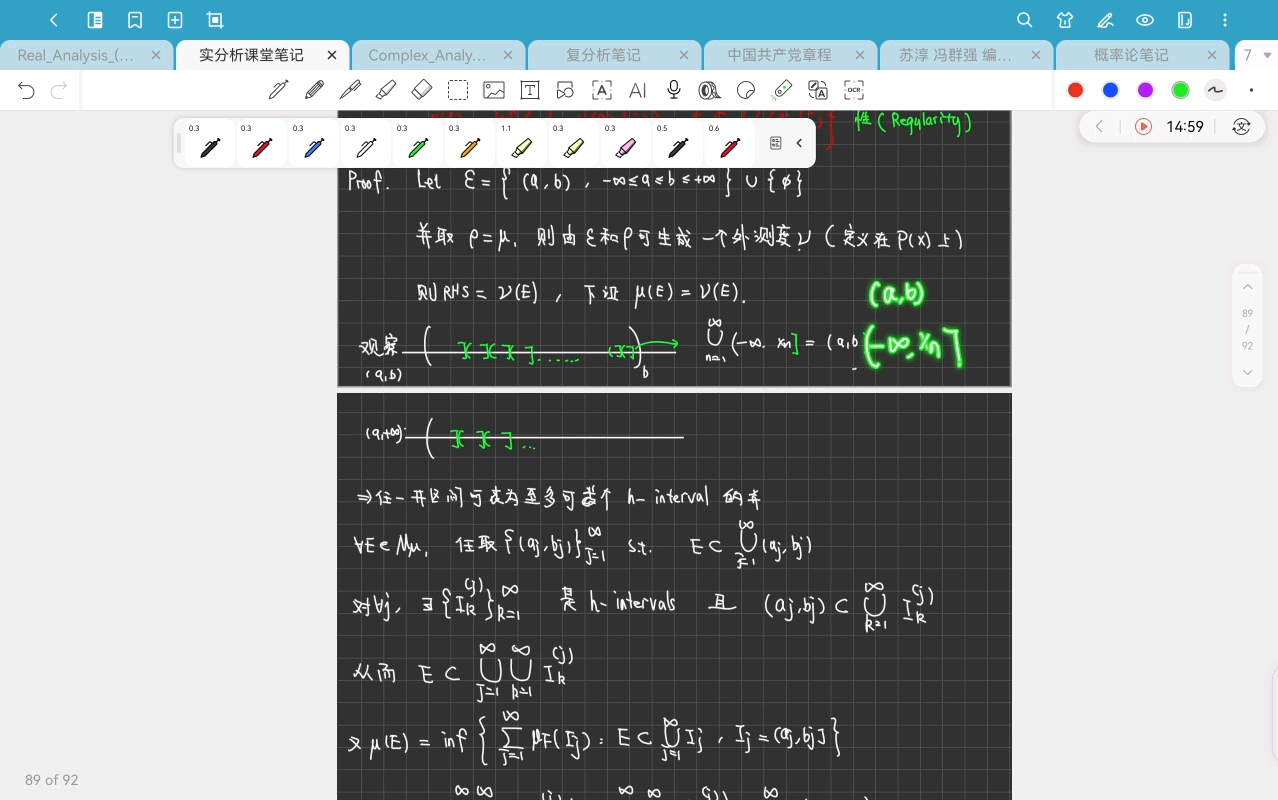 Real_Analysis_(...
实分析课堂笔记
Complex_Analy...
复分析笔记
中国共产党章程
苏淳 冯群强 编...
概率论笔记
7
T
A
AI
A
OCR
性(Regularity)
0.3 0.3 0.3 0.3 0.3 0.3 1.1 0.3 0.3 0.5 0.6
14:59
Proof. Let ℰ = { (a, b) , -∞ ≤ a ≤ b ≤ +∞ } ∪ { ∅ }
并取 ρ = μ, 则由 ℰ 和 ρ 可生成一个外测度 ν (定义在 P(X) 上)
则 RHS = ν(E) , 下证 μ(E) = ν(E).
(a,b)
观察 (a,b) ( ](](](]...... (](] ) b
∞⋃n=1 (-∞, xn] = (a,b
(-∞, xn]
89 / 92
(a,+∞) ( ](](]...
⇒ 任一开区间可表为至多可数个 h-interval 的并
∀E∈Mμ, 任取 {(aj, bj)}∞j=1 s.t. E ⊂ ∞⋃j=1 (aj, bj)
对∀j, ∃ {Ik(j)}∞k=1 是 h-intervals 且 (aj, bj) ⊂ ∞⋃k=1 Ik(j)
从而 E ⊂ ∞⋃j=1 ∞⋃k=1 Ik(j)
又 μ(E) = inf { ∞∑j=1 μF(Ij) : E ⊂ ∞⋃j=1 Ij , Ij = (aj, bj] }
∞ ∞ (j) ∞ ∞ (j) ∞
89 of 92